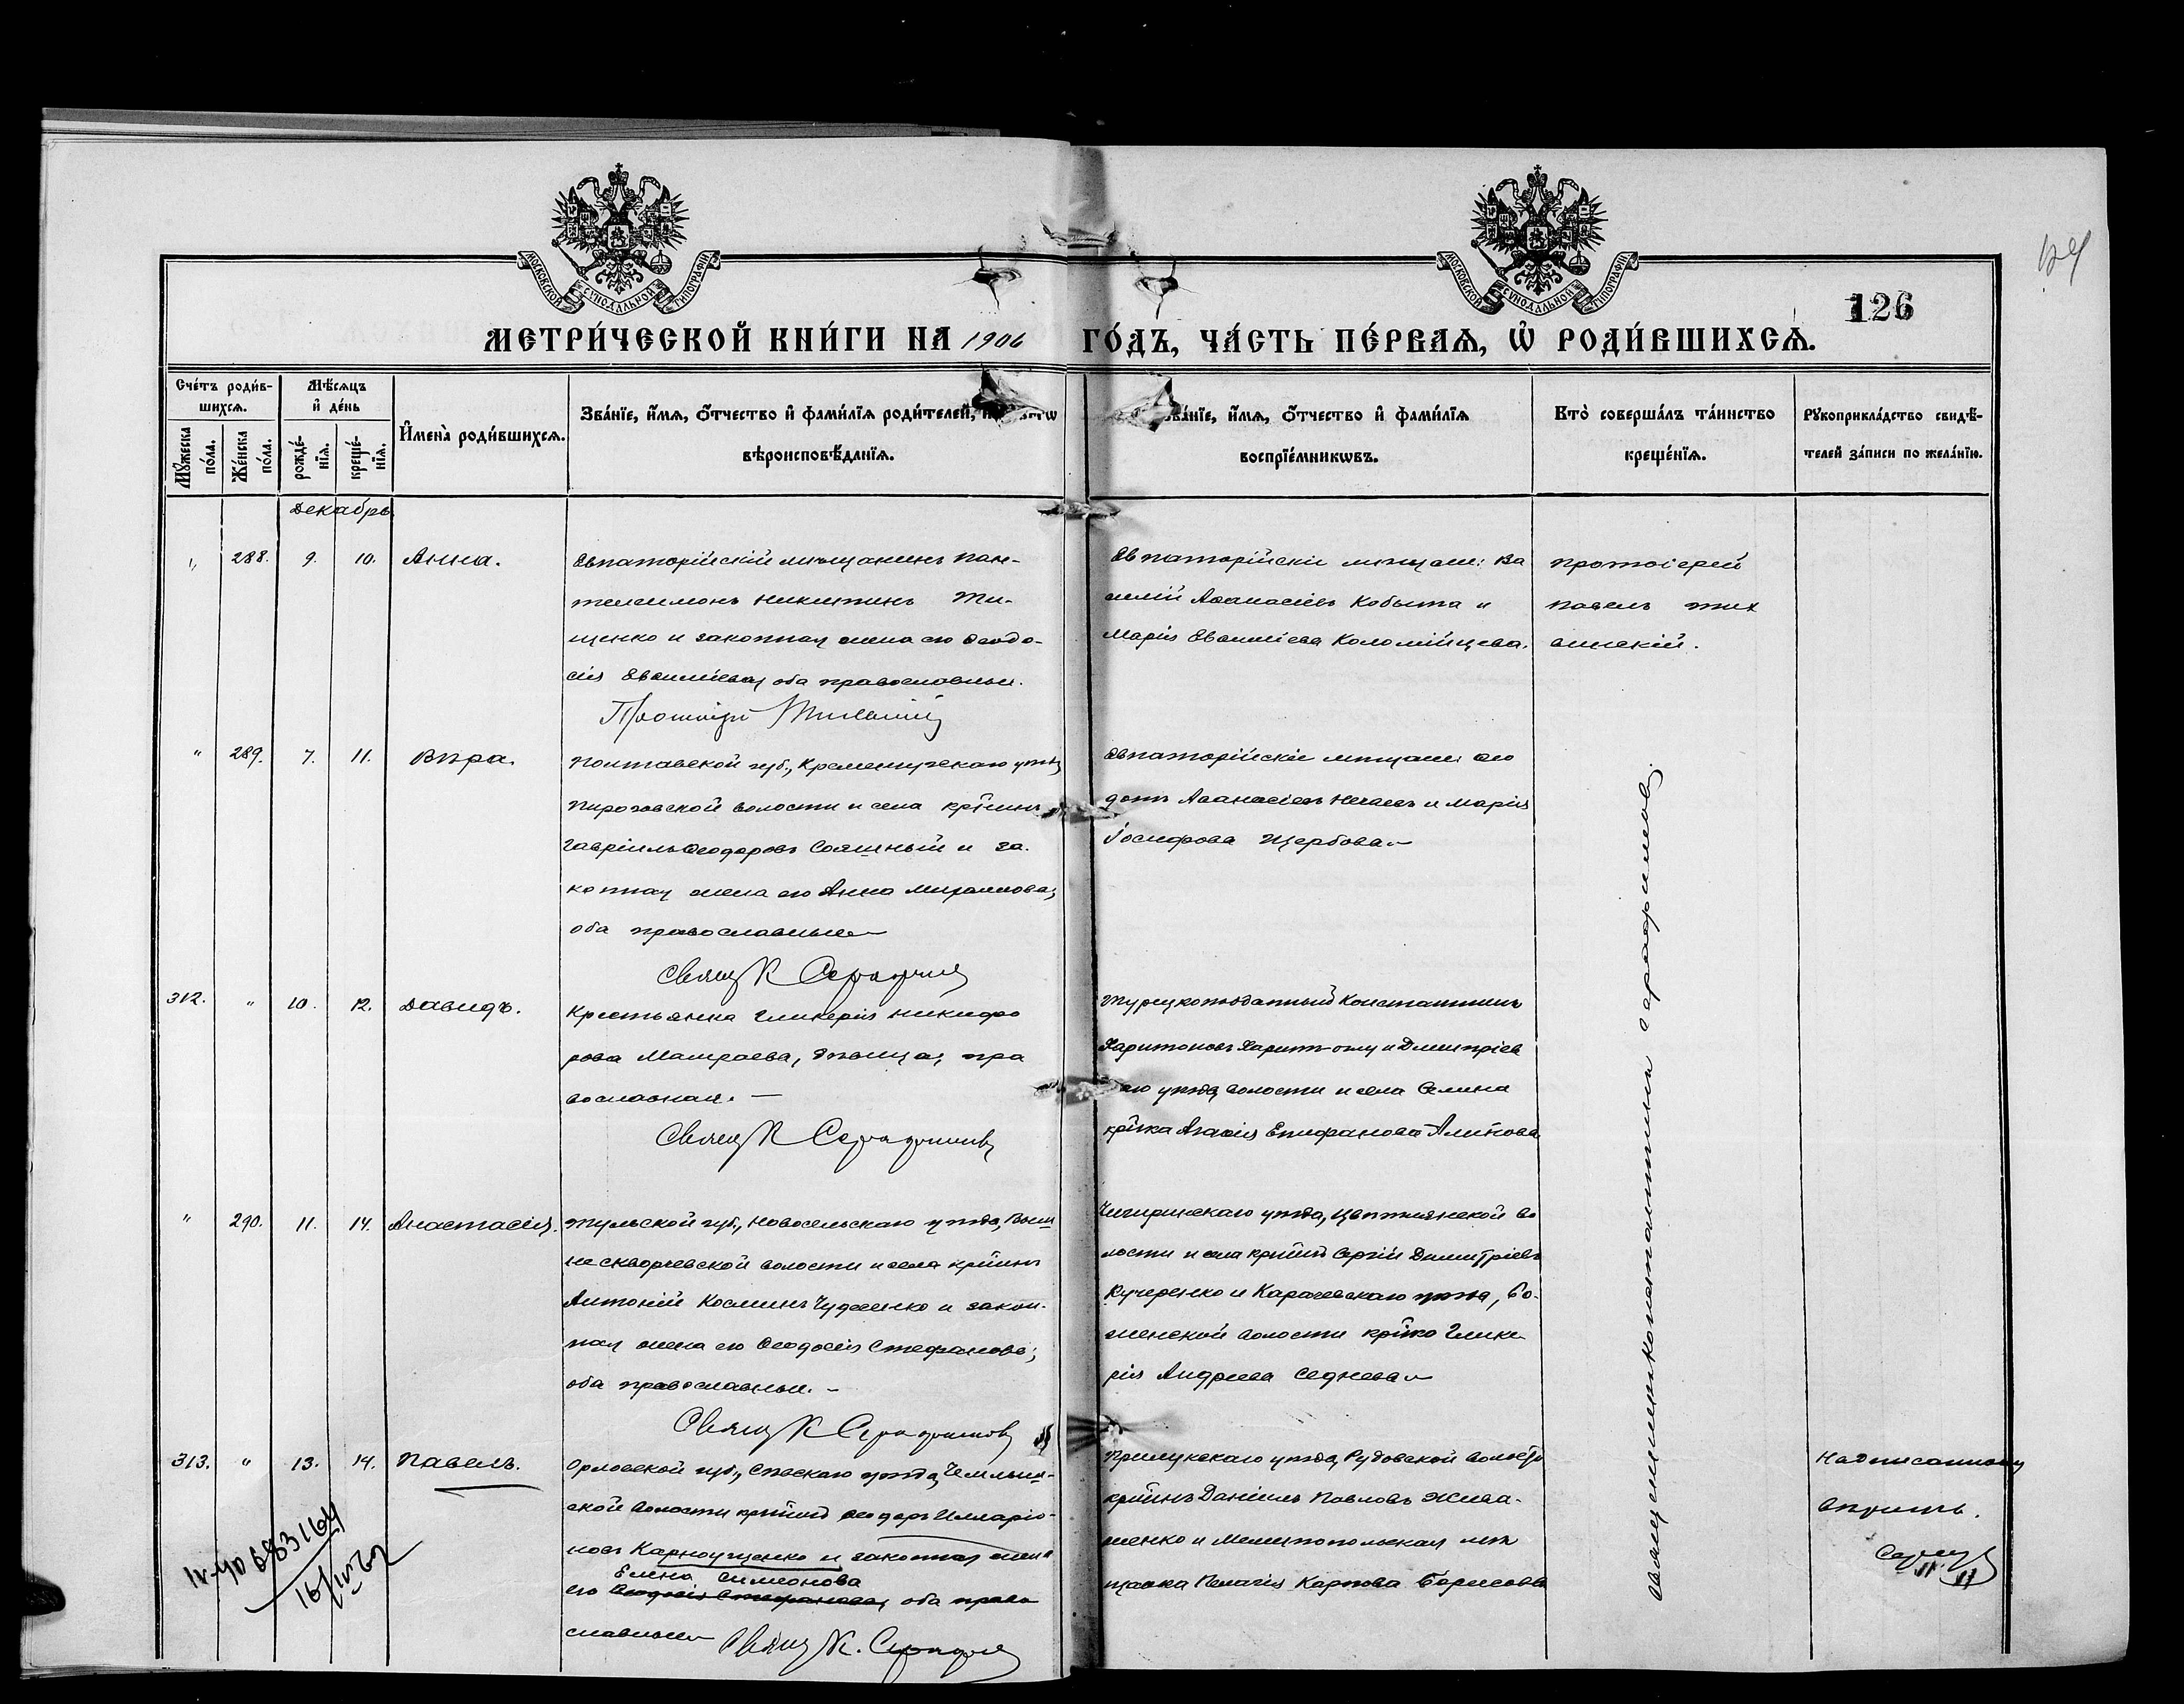 МОСКОВСКОЙ СѴНОДАЛЬНОЙ ТИПОГРАФІИ
МОСКОВСКОЙ СѴНОДАЛЬНОЙ ТИПОГРАФІИ
126
МЕТРИ́ЧЕСКОЙ КНИ́ГИ НА 1906 ГО́ДЪ, ЧА́СТЬ ПЕ́РВАѦ, Ѽ РОДИ́ВШИХСѦ.
Сче́тъ роди́в-
шихсѧ.
Мꙋжеска по́ла.
Же́нска по́ла.
Мѣ́сѧцъ
и҆ де́нь
рожде́-
нїѧ.
креще́-
нїѧ.
И҆мена̀ роди́вшихсѧ.
Зва́нїе, и҆́мѧ, ѻ҆́тчество и҆ фами́лїѧ роди́телей,
вѣроисповѣ́данїѧ.
зва́нїе, и҆́мѧ, ѻ҆́тчество и҆ фами́лїѧ
воспрїе́мникѡвъ.
Кто̀ соверша́лъ та́инство
креще́нїѧ.
Рꙋкоприкла́дство свидѣ́-
телей за́писи по жела́нїю.
Декабрь
" 288. 9. 10. Анна.
Евпаторійскій мѣщанинъ Пан-
телеимонъ Никитинъ Ти-
щенко и законная жена его Ѳеодо-
сія Евсиміева, оба православные.
Протоіерей Тихвинскій
Евпаторійскіе мѣщане: Ва
силій Аѳанасіевъ Кобыта и
Марія Евсиміева Коломійцева.
Протоіерей
Павелъ Тих
винскій.
" 289. 7. 11. Вѣра.
Полтавской губ., Кременчугскаго уѣзд,
Пироговской волости и села кр-нинъ
Гавріилъ Ѳеодоровъ Соляшный и за-
конная жена его Анна Михаилова,
оба православные
Свящ К Серафимов
Евпаторійскіе мѣщане: Ѳео
дотъ Аѳанасіевъ Нечаевъ и Марія
Іосифова Щербова
312. " 10. 12. Давидъ.
Крестьянка Гликерія Никифо
рова Маш��аева, дѣвица, пра
вославная. —
Свящ К Серафимовъ
Турецкоподданный Константинъ
Харитоновъ Харит-оглу и Дмитріев
скаго уѣзда, волости и села Селина
кр-нка Агаѳія Епифанова Алинова
" 290. 11. 14. Анастасія.
Тульской губ., Новосельскаго уѣзда, Выш
не скворчевской волости и села кр-нинъ
Антоній Косминъ Чудненко и закон-
ная жена его Ѳеодосія Стефанова;
оба православные. —
Свящ К Серафимовъ
Чигиринскаго уѣзда, Цвѣтнянской во
лости и села кр-нинъ Сергій Димитріевъ
Кучеренко и Карачевскаго уѣзда, Бо-
женской волости кр-нка Глике
рія Андреева Седнева
313. " 13. 14. Павелъ.
Орловской губ., Сѣвскаго уѣзда,
ской волости кр-нинъ Ѳеодоръ Иларіо-
новъ Карнаущенко и законная жена
Елена Симеонова
его Ѳеодосія Стефанова, оба право
славные Свящ К. Серафим
Прилукскаго уѣзда, Рудовской волости
кр-нинъ Даніилъ Павловъ Жива-
шенко и Мелитопольская мѣ
щанка Пелагія Карпова Борисова
Священникъ Константинъ Серафимовъ.
Надписанному
вѣрить.